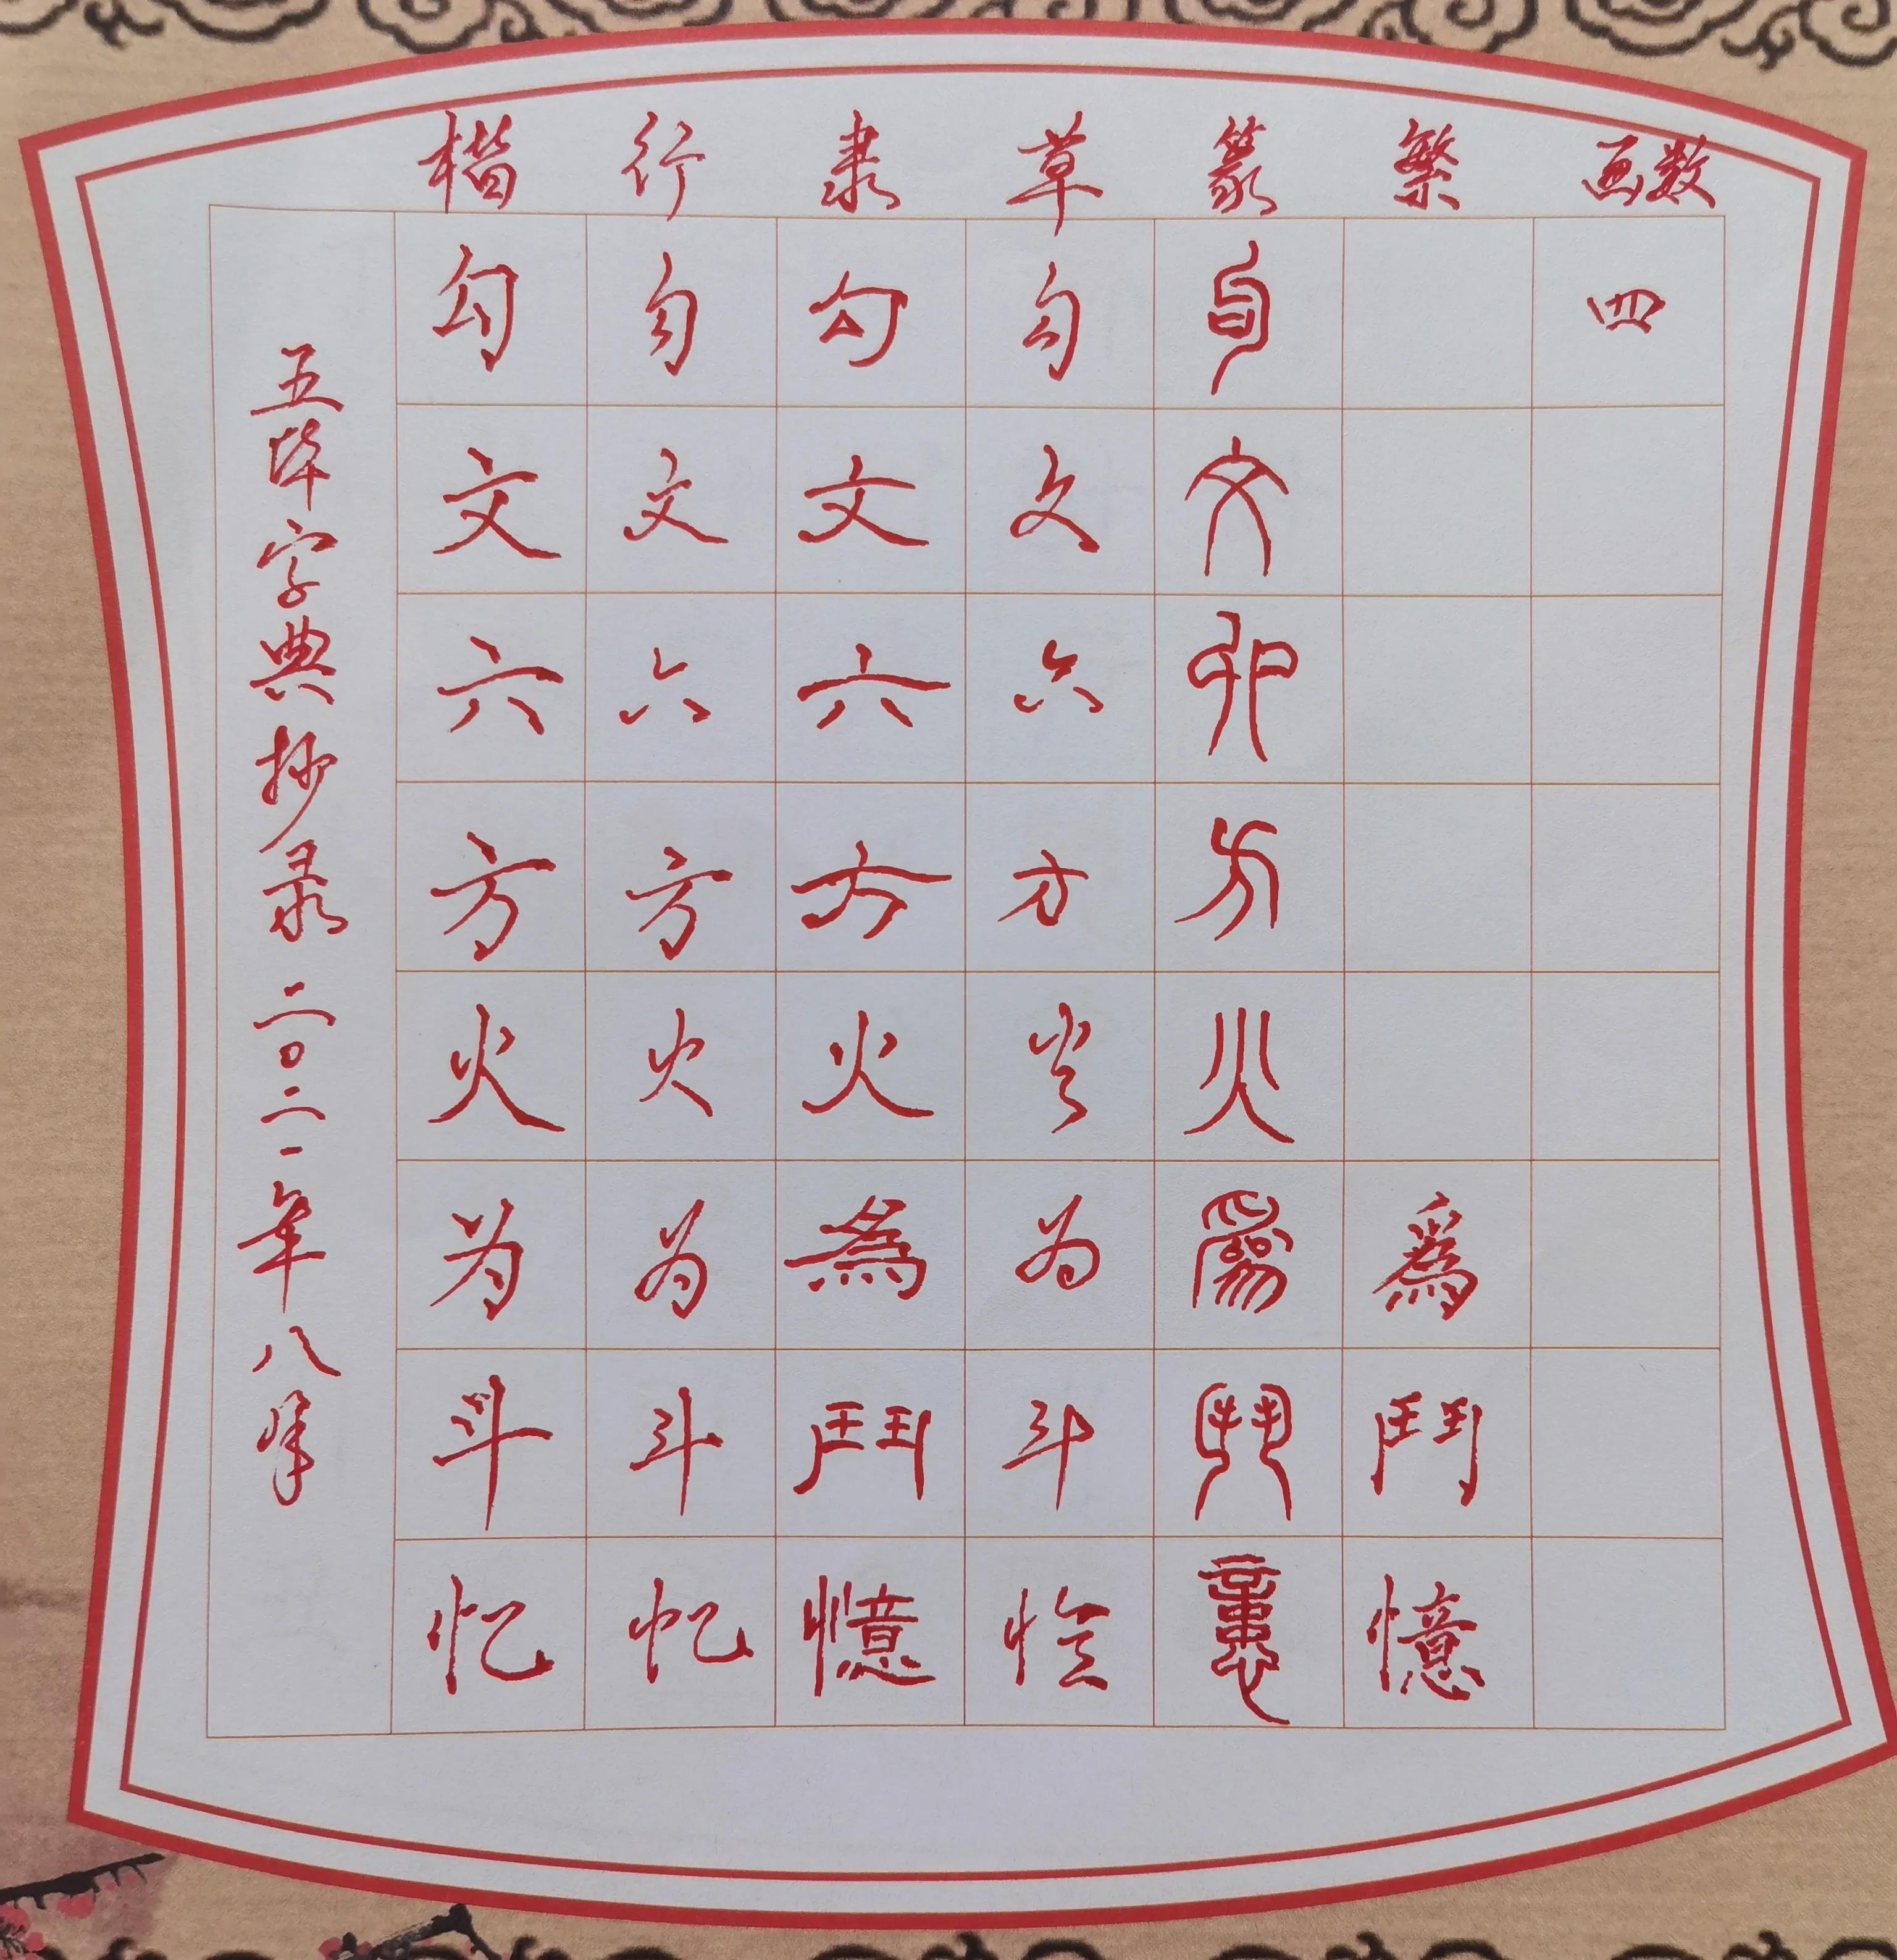 楷 行 隶 草 篆 繁 画数
勾 勾 勾 勾 四
文 文 文 文 文
六 六 六 六 六
方 方 方 方 方
火 火 火 火 火
为 为 為 为 爲 爲
斗 斗 鬥 斗 鬥 鬥
忆 忆 憶 忆 憶 憶
五体字典抄录 二〇二一年八